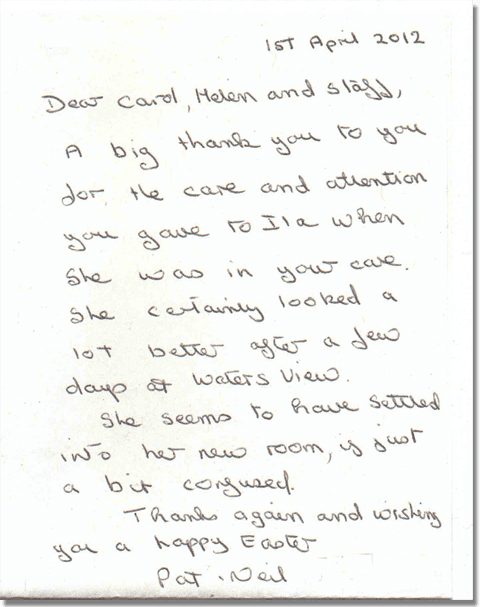 1st April 2012
Dear Carol, Helen and staff,
A big thank you to you
for the care and attention
you gave to Ila when
she was in your care.
She certainly looked a
lot better after a few
days at Waters View.
She seems to have settled
into her new room, is just
a bit confused.
Thanks again and wishing
you a happy Easter
Pat. Neil